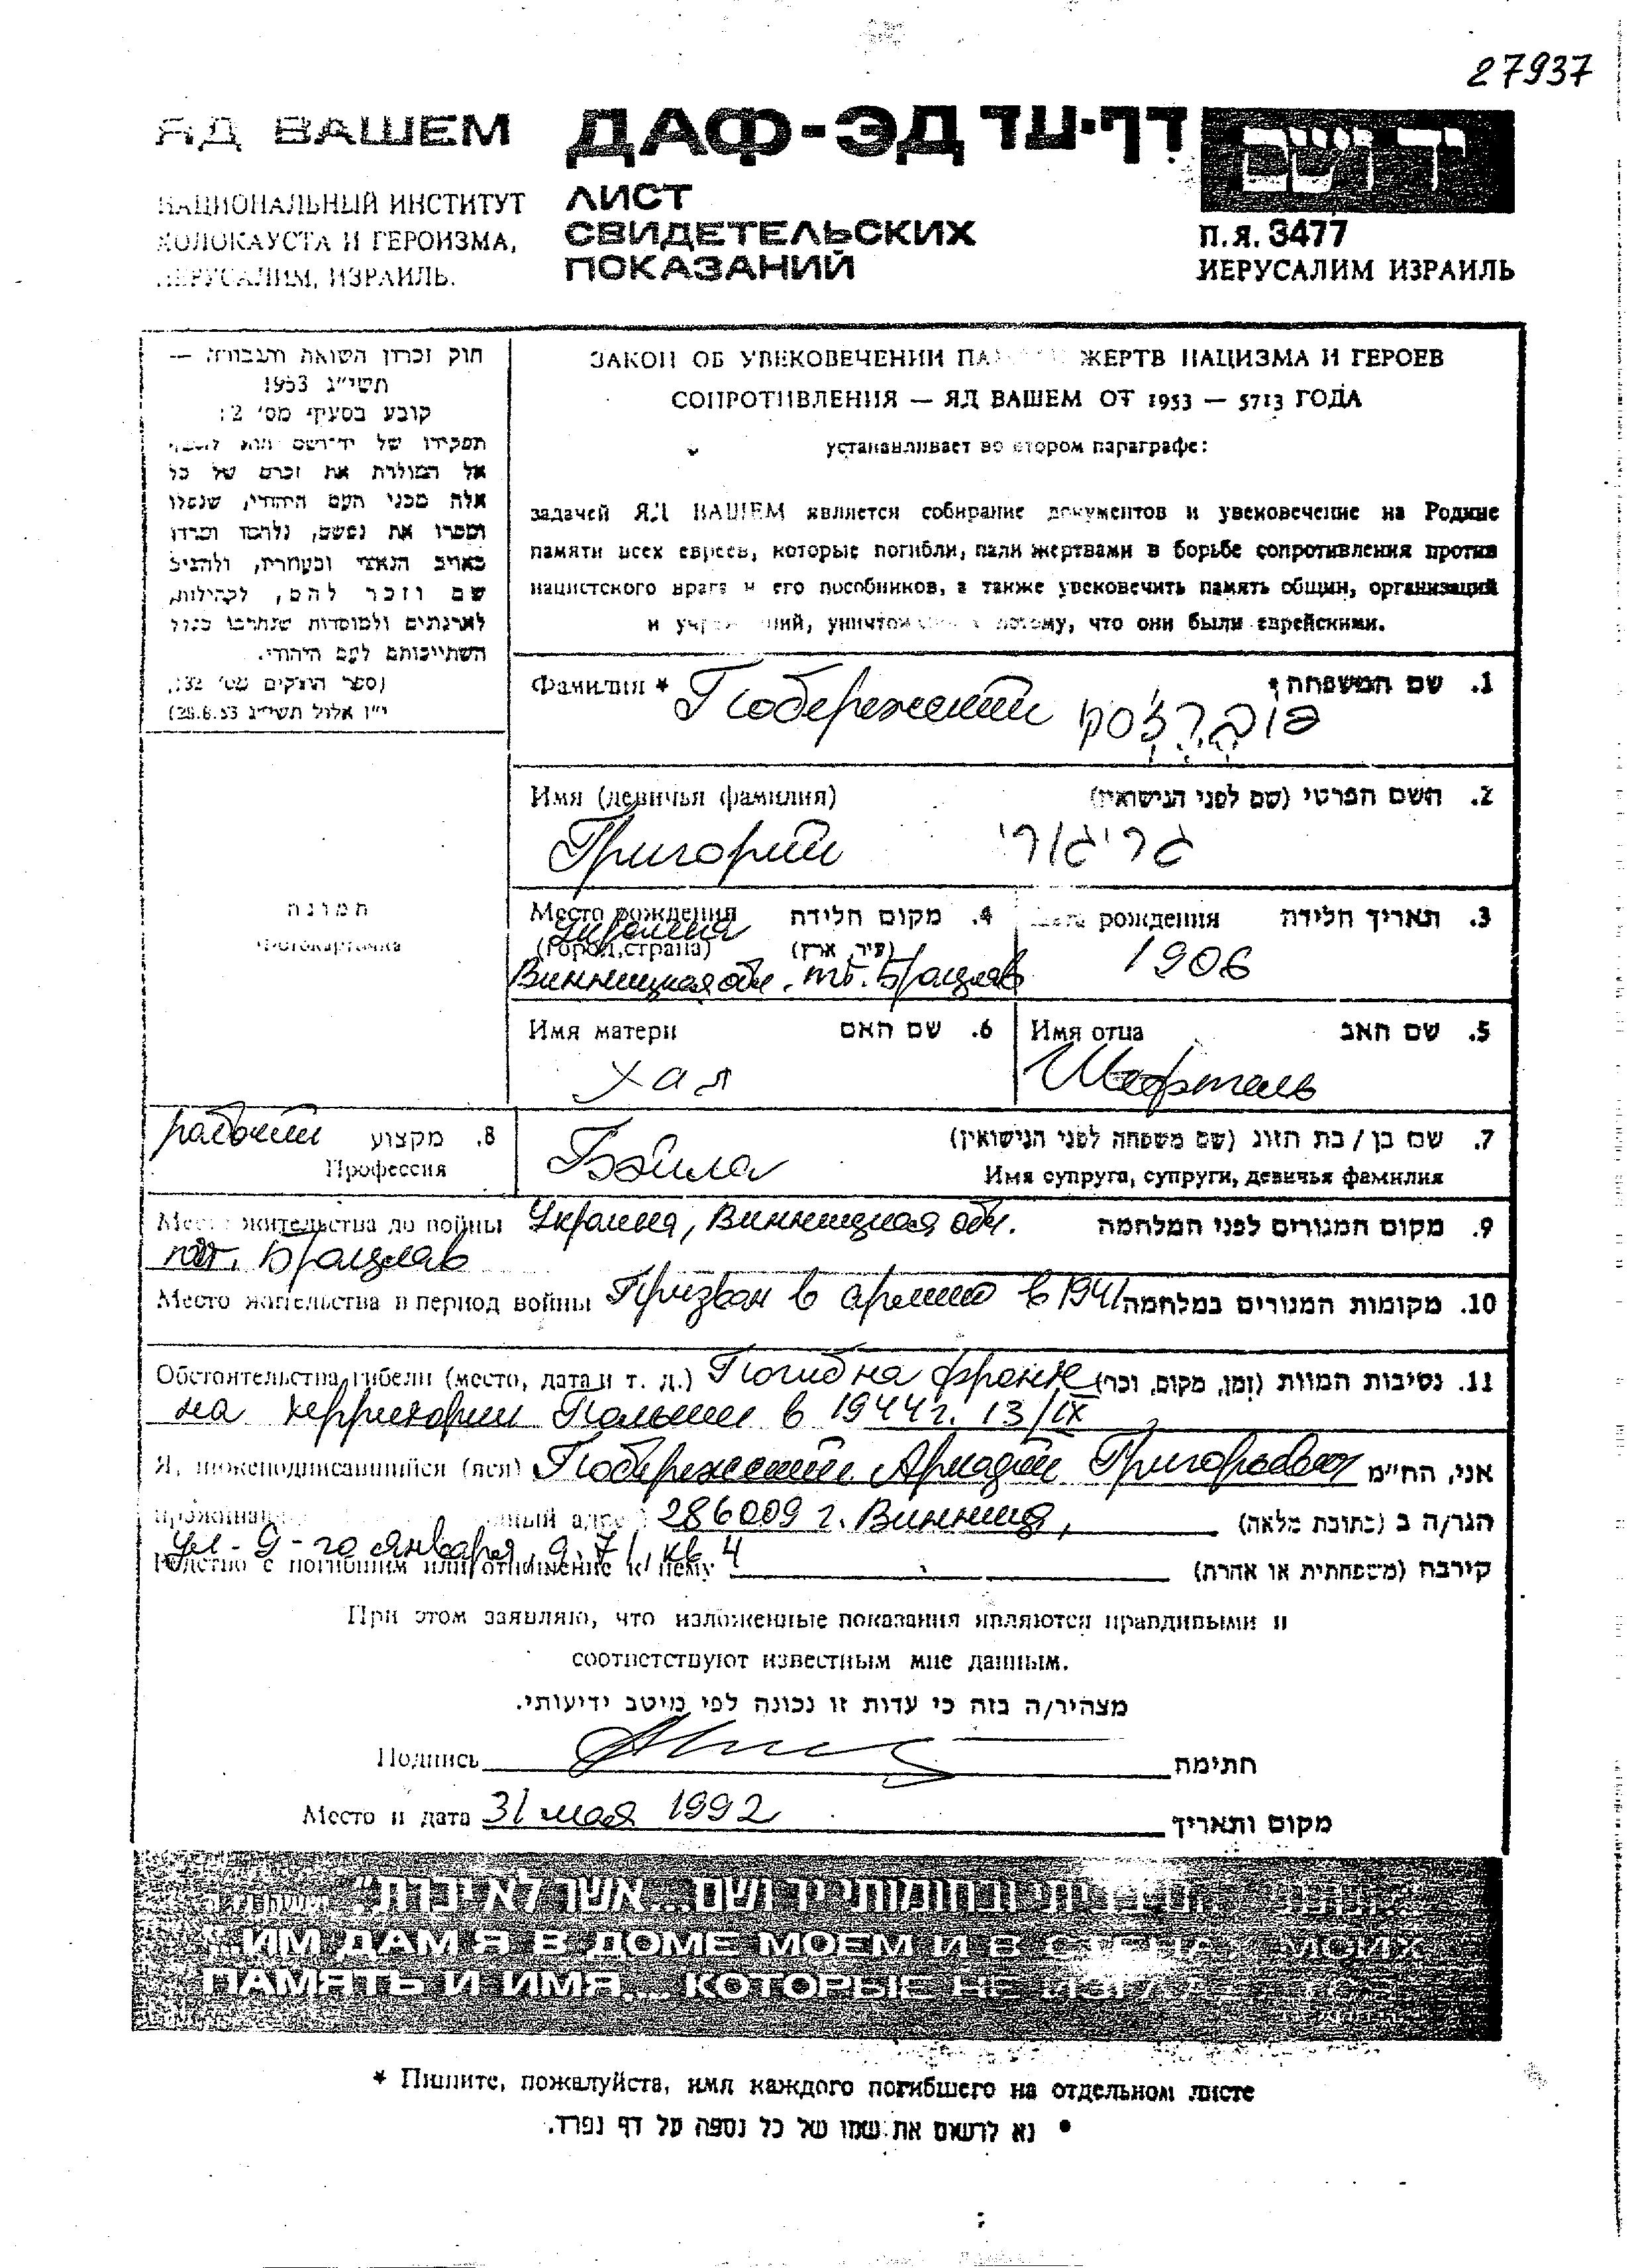 27937
ЯД ВАШЕМ
ДАФ-ЭД דף-עד
יד ושם
НАЦИОНАЛЬНЫЙ ИНСТИТУТ
ХОЛОКАУСТА И ГЕРОИЗМА,
ИЕРУСАЛИМ, ИЗРАИЛЬ.
ЛИСТ
СВИДЕТЕЛЬСКИХ
ПОКАЗАНИЙ
П.Я. 3477
ИЕРУСАЛИМ ИЗРАИЛЬ
חוק זכרון השואה והגבורה —
תשי״ג 1953
קובע בסעיף מס׳ 2:
תפקידו של יד־ושם הוא לאסוף
אל המולדת את זכרם של כל
אלה מבני העם היהודי, שנפלו
ומסרו את נפשם, נלחמו ומרדו
באויב הנאצי ובעוזריו, ולהציב
שם וזכר להם, לקהילות,
לארגונים ולמוסדות שנחרבו בגלל
השתייכותם לעם היהודי.
(ספר החוקים מס׳ 132,
י״ז אלול תשי״ג 28.8.53)
ЗАКОН ОБ УВЕКОВЕЧЕНИИ ПАМЯТИ ЖЕРТВ НАЦИЗМА И ГЕРОЕВ
СОПРОТИВЛЕНИЯ — ЯД ВАШЕМ ОТ 1953 — 5713 ГОДА
устанавливает во втором параграфе:
задачей ЯД ВАШЕМ является собирание документов и увековечение на Родине
памяти всех евреев, которые погибли, пали жертвами в борьбе сопротивления против
нацистского врага и его пособников, а также увековечить память общин, организаций
и учреждений, уничтоженных потому, что они были еврейскими.
Фамилия * Побережский פוברצסקי 1. שם המשפחה*
Имя (девичья фамилия) 2. השם הפרטי (שם לפני הנישואין)
Григорий גריגורי
תמונה
Фотокарточка
Место рождения 4. מקום חלידה
Украина
(город, страна) (עיר, ארץ)
Винницкая обл. пгт. Брацлав
Дата рождения 3. תאריך חלידה
1906
Имя матери 6. שם האם
Хая
Имя отца 5. שם האב
Шефтель
рабочий 8. מקצוע
Профессия
Бэйла 7. שם בן / בת הזוג (שם משפחה לפני הנישואין)
Имя супруга, супруги, девичья фамилия
Место жительства до войны Украина, Винницкая обл. 9. מקום המגורים לפני המלחמה
пгт. Брацлав
Место жительства в период войны Призван в армию в 1941 10. מקומות המגורים במלחמה
Обстоятельства гибели (место, дата и т. д.) Погиб на фронте 11. נסיבות המוות (זמן, מקום, וכו׳)
на территории Польши в 1944г. 13/IX
Я, нижеподписавшийся (аяся) Побережский Аркадий Григорьевич אני, הח״מ
проживающий полный адрес) 286009 г. Винница, הגר/ה ב (כתובת מלאה)
ул. 9-го января, д. 71, кв 4
Родство с погибшим или отношение к нему קירבה (משפחתית או אחרת)
При этом заявляю, что изложенные показания являются правдивыми и
соответствуют известным мне данным.
מצהיר/ה בזה כי עדות זו נכונה לפי מיטב ידיעותי.
Подпись חתימה
Место и дата 31 мая 1992 מקום ותאריך
בביתי ובחומותי יד ושם...אשר לא יכרת״
"...ИМ ДАМ Я В ДОМЕ МОЕМ И В СТЕНАХ МОИХ
ПАМЯТЬ И ИМЯ... КОТОРЫЕ НЕ
* Пишите, пожалуйста, имя каждого погибшего на отдельном листе
• נא לרשום את שמו של כל נספה על דף נפרד.